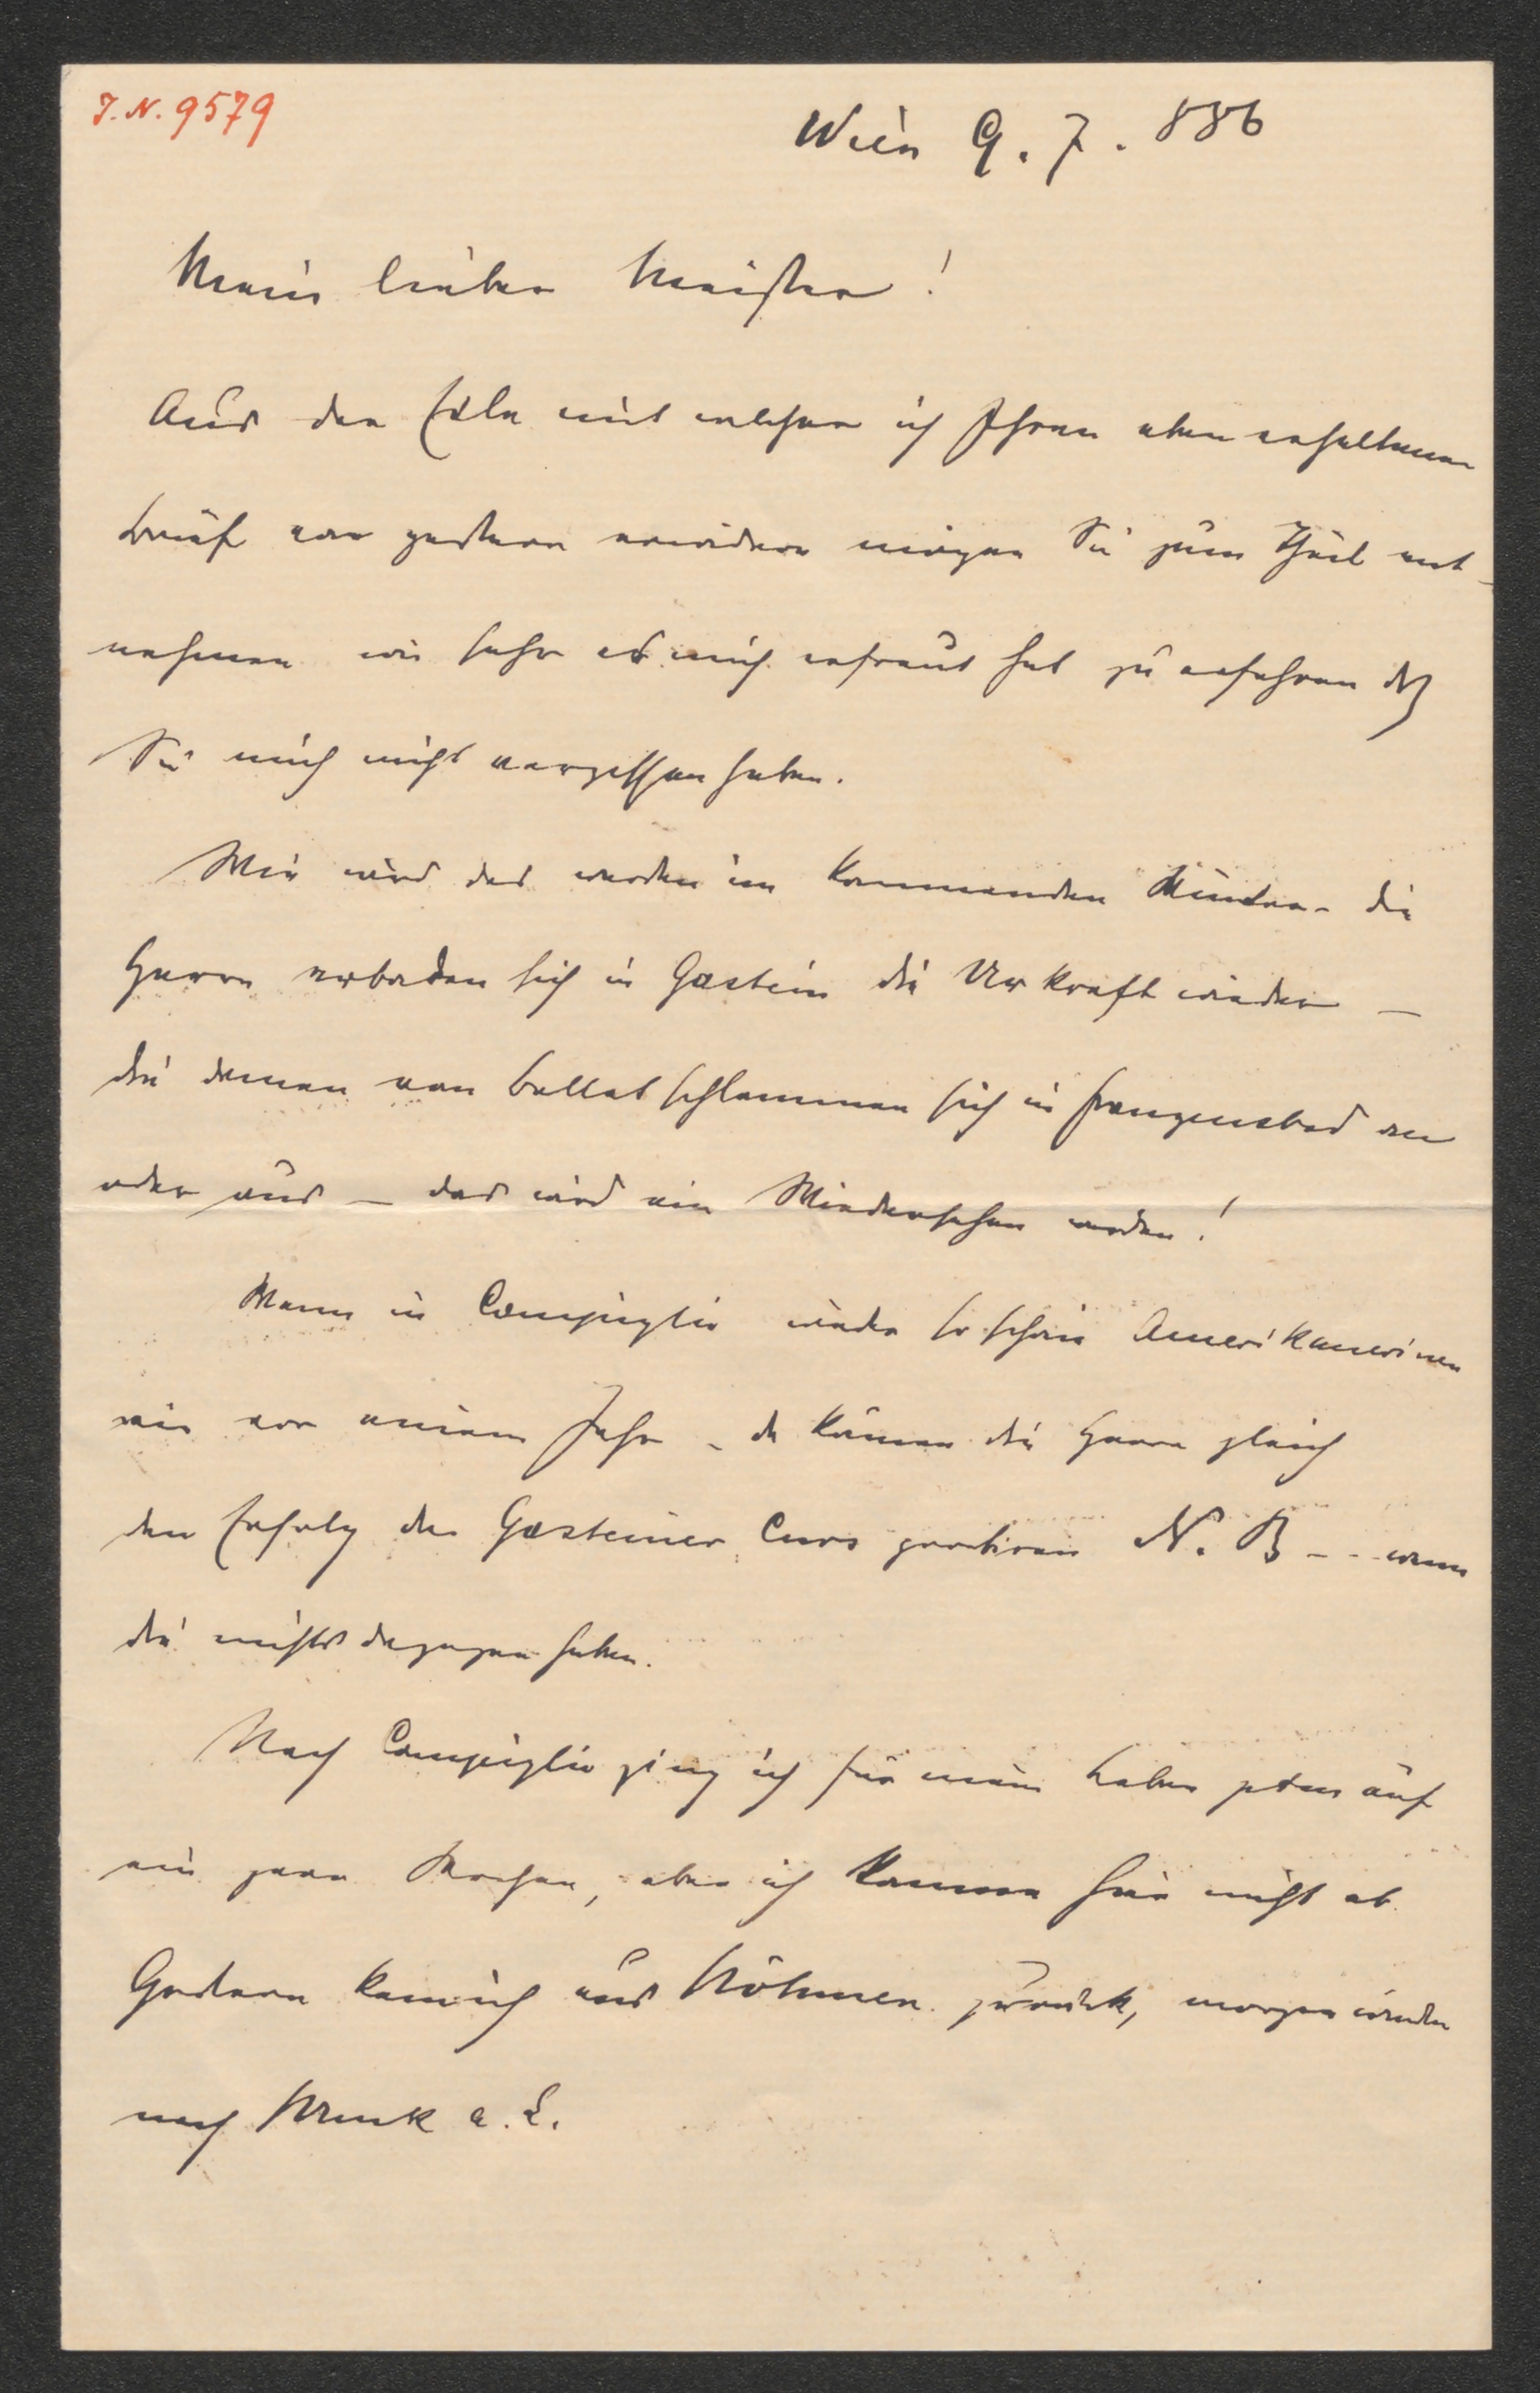 I. N. 9579
Wien 9. 7. 886
Mein lieber Meister!
Aus der Eile mit welcher ich Ihren eben erhaltenen
Brief von gestern erwidere mögen Sie zum Theil ent-
nehmen wie sehr es mich erfreut hat zu erfahren dß
Sie mich nicht vergessen haben.
Wie wird das werden im kommenden Winter - die
Herrn erbaden sich in Gastein die Urkraft wieder —
die Damen vom Ballet schlammen sich in Franzensbad an
oder aus — das wird ein Wiedersehen werden!
Wenn in Campiglio wieder so schöne Amerikanerinen
wie vor einem Jahr - da können die Herrn gleich
den Erfolg der Gasteiner Curs probiren N. B - - wenn
die nichts dagegen haben.
Nach Campiglio ging ich für mein Leben gern auf
ein paar Wochen, aber ich komme hier nicht ab.
Gestern kam ich aus Böhmen zurück, morgen wieder
nach Bruck a. L.